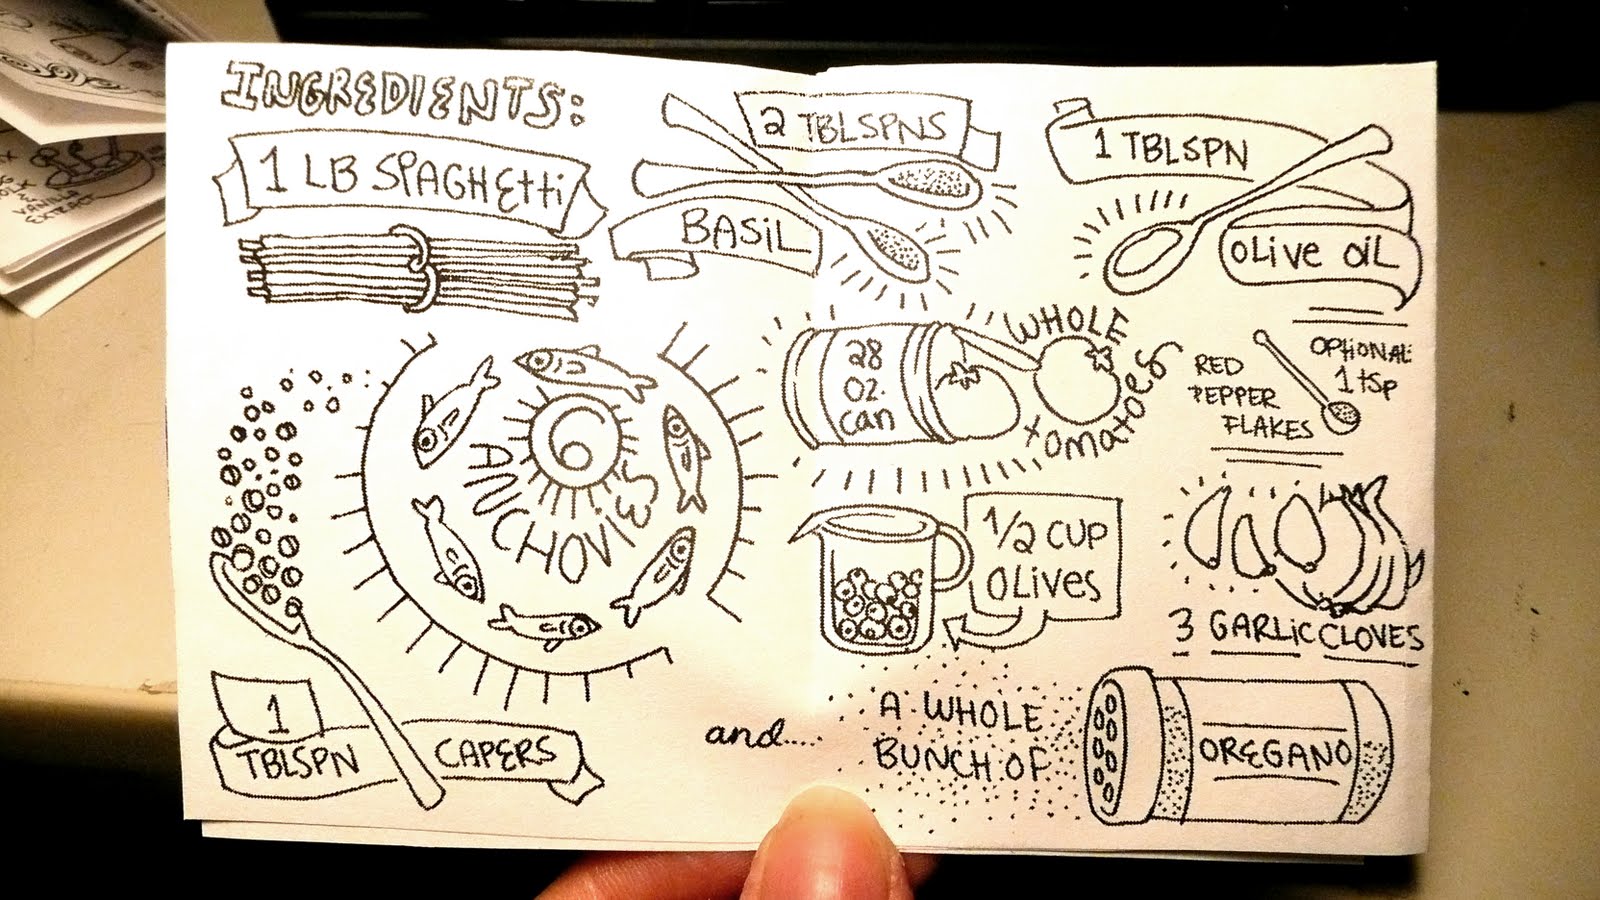 INGREDIENTS:
1 LB SPAGHEtti
2 TBLSPNS
BASiL
1 TBLSPN
OLive OiL
6
ANCHOVIES
28
OZ.
can
WHOLE
tomatoes
RED
PEPPER
FLAKES
OPtiONAL:
1 tSp
1/2 CUP
OLIVES
3 GARLiC CLOVES
1
TBLSPN CAPERS
and.....
A WHOLE
BUNCH OF
OREGANO
VANILLA
EXTRACT